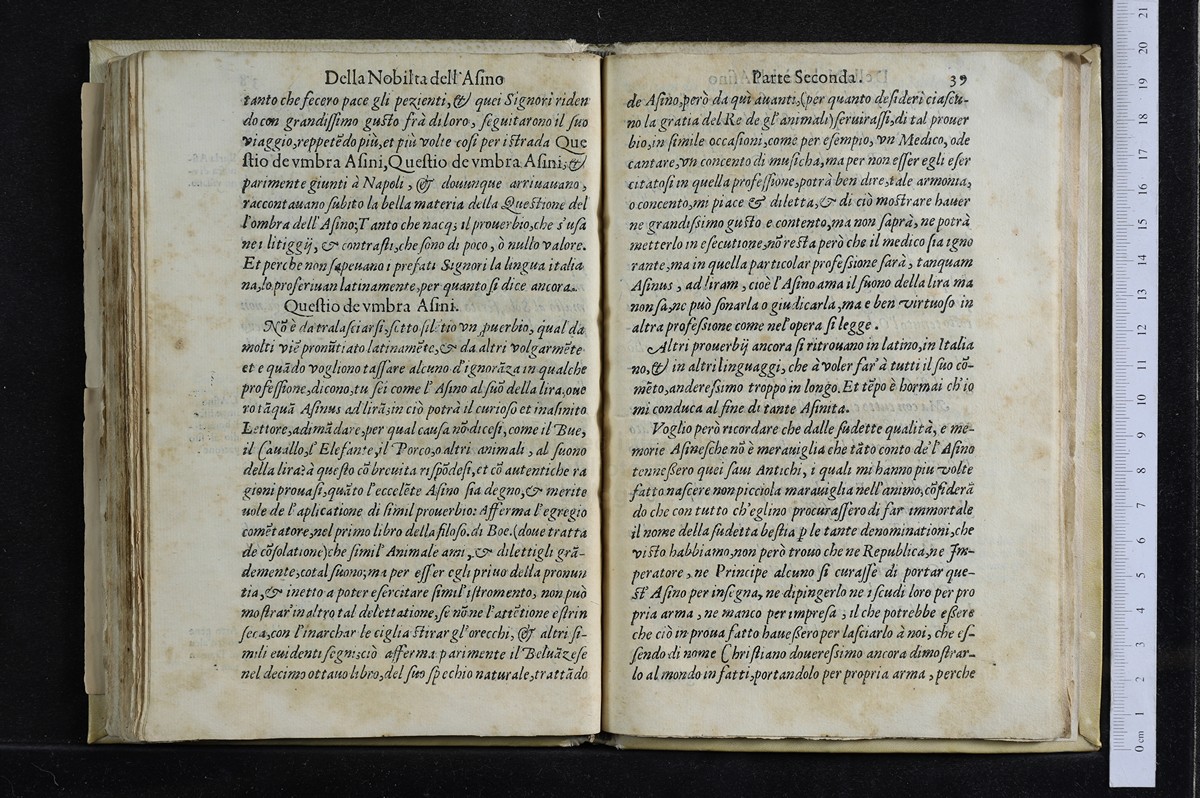 Della Nobilta dell'Asino
tanto che fecero pace gli pezienti, & quei Signori riden
do con grandissimo gusto frà di loro, seguitarono il suo
viaggio, reppetẽdo più, et più volte cosi per istrada Que
stio de vmbra Asini, Questio de vmbra Asini; &
parimente giunti à Napoli, & douunque arriuauano,
raccontauano subito la bella materia della Questione del
l'ombra dell'Asino; Tanto che nacq; il prouerbio, che s'usa
ne i litiggij, & contrasti, che sono di poco, ò nullo valore.
Et perche non sapeuano i prefati Signori la lingua italia
na, lo proferiuan latinamente, per quanto si dice ancora.
Questio de vmbra Asini.
Nõ è da tralasciarsi, sotto silẽtio vn puerbio, qual da
molti viẽ pronũtiato latinamẽte, & da altri volgarmẽte
et e quãdo vogliono tassare alcuno d'ignorãza in qualche
professione, dicono, tu sei come l'Asino al suõ della lira, oue
ro tãquã Asinus ad lirã; in ciò potrà il curioso et inasinito
Lettore, adimãdare, per qual causa nõ dicesi, come il Bue,
il Cauallo, l'Elefante, il Porco, o altri animali, al suono
della lira? à questo cõ breuita rispõdesi, et cõ autentiche ra
gioni prouasi, quãto l'eccelẽte Asino sia degno, & merite
uole de l'aplicatione di simil prouerbio: Afferma l'egregio
comẽtatore, nel primo libro della filoso. di Boe. (doue tratta
de cõsolatione) che simil' Animale ami, & dilettigli grã-
demente, cotal suono; ma per esser egli priuo della pronun
tia, & inetto a poter esercitare simil'istromento, non può
mostrar' in altro tal delettatione, se nõ ne l'astẽtione estrin
seca, con l'inarchar le ciglia stirar gl'orecchi, & altri si-
mili euidenti segni; ciò afferma parimente il Beluãcese
nel decimo ottauo libro, del suo specchio naturale, trattãdo
Parte Seconda. 39
de Asino, però da qui auanti, (per quanto desideri ciascu-
no la gratia del Re de gl'animali) seruirassi, di tal prouer
bio, in simile occasioni, come per esempio, vn Medico, ode
cantare, vn concento di musicha, ma per non esser egli eser
citatosi in quella professione, potrà ben dire, tale armonia,
o concento, mi piace & diletta, & di ciò mostrare hauer
ne grandissimo gusto e contento, ma non saprà, ne potrà
metterlo in esecutione, nõ resta però che il medico sia igno
rante, ma in quella particolar professione sarà, tanquam
Asinus, ad liram, cioè l'Asino ama il suono della lira ma
non sa, ne può sonarla o giudicarla, ma e ben virtuoso in
altra professione come nel'opera si legge.
Altri prouerbij ancora si ritrouano in latino, in Italia
no, & in altri linguaggi, che à voler far'à tutti il suo cõ-
mẽto, anderessimo troppo in longo. Et tẽpo è hormai ch'io
mi conduca al fine di tante Asinita.
Voglio però ricordare che dalle sudette qualità, e me-
morie Asinesche nõ è merauiglia che tãto conto de l'Asino
tenneßero quei saui Antichi, i quali mi hanno piu volte
fatto nascere non picciola marauiglia nell'animo, cõsiderã
do che con tutto ch'eglino procurassero di far immortale
il nome della sudetta bestia p le tante denominationi, che
visto habbiamo, non però trouo che ne Republica, ne Im-
peratore, ne Principe alcuno si curasse di portar que-
st'Asino per insegna, ne dipingerlo ne i scudi loro per pro
pria arma, ne manco per impresa, il che potrebbe eßere
che ciò in proua fatto haueßero per lasciarlo à noi, che es-
sendo di nome Christiano doueressimo ancora dimostrar-
lo al mondo in fatti, portandolo per propria arma, perche